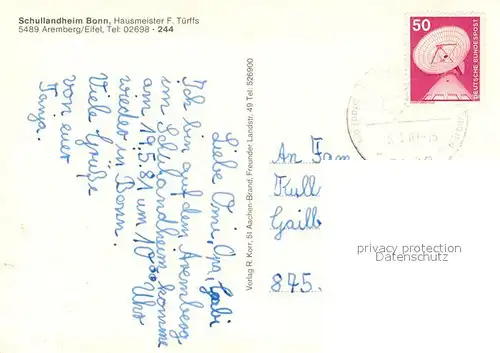 Schullandheim Bonn, Hausmeister F. Türffs
5489 Aremberg/Eifel, Tel: 02698 - 244
Liebe Omi, Opa, Gabi
Ich bin auf dem Aremberg
im Schullandheim komme
am 19.5.81 um 10.00 Uhr
wieder in Bonn.
Viele Grüße
von eurer
Tanja.
Verlag R. Korr, 51 Aachen-Brand, Freunder Landstr. 49 Tel: 526900
50
DEUTSCHE BUNDESPOST
An Fam
Kull
Gailb
845.
privacy protection
Datenschutz